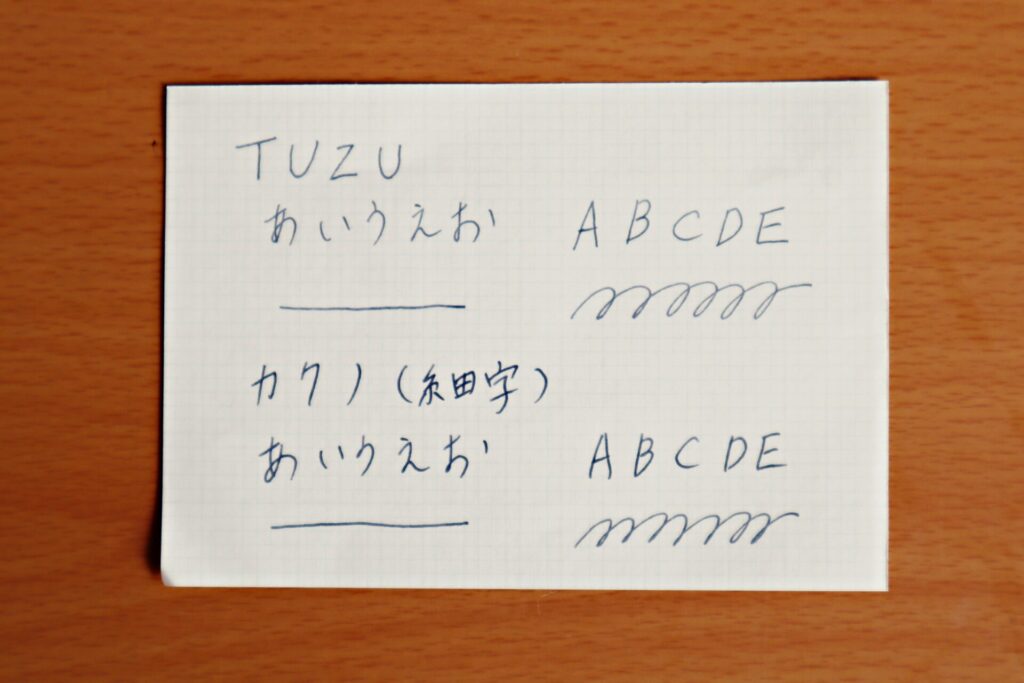 TUZU
あいうえお ABCDE
カクノ(細字)
あいうえお ABCDE